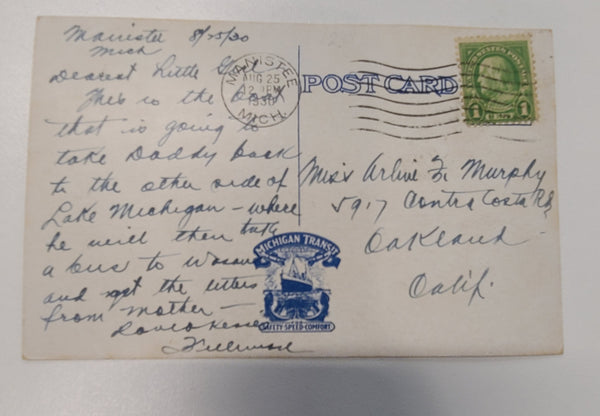 Manistee 8/25/30
Mich
Dearest Little Girl
This is the boat
that is going to
take Daddy back
to the other side of
Lake Michigan - where
he will then take
a bus to
and get the letters
from Mother -
Love & Kisses
MANISTEE
AUG 25
2 PM
1930
MICH.
POST CARD
UNITED STATES POSTAGE
1 1
Miss Arline F. Murphy
5917 Contra Costa Rd
Oakland -
Calif.
MICHIGAN TRANSIT
SAFETY-SPEED-COMFORT